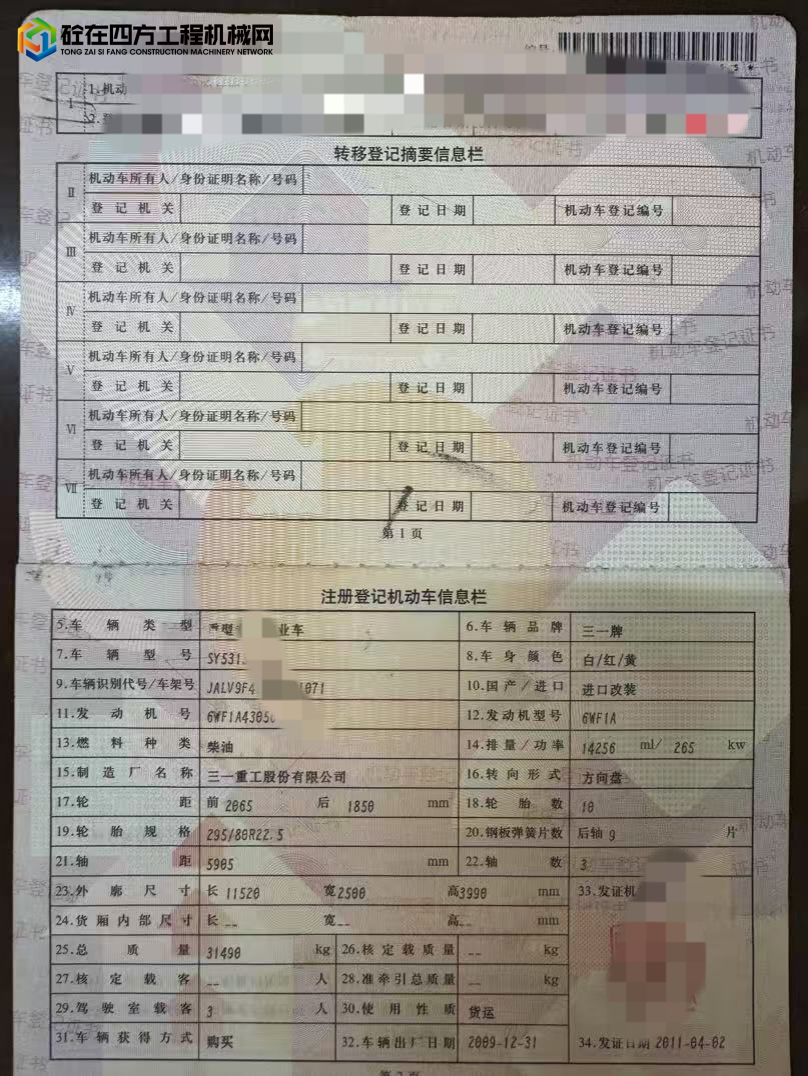 砼在四方工程机械网
TONG ZAI SI FANG CONSTRUCTION MACHINERY NETWORK
编号
1.机动
1
2.
转移登记摘要信息栏
Ⅱ 机动车所有人/身份证明名称/号码
登记机关 登记日期 机动车登记编号
Ⅲ 机动车所有人/身份证明名称/号码
登记机关 登记日期 机动车登记编号
Ⅳ 机动车所有人/身份证明名称/号码
登记机关 登记日期 机动车登记编号
Ⅴ 机动车所有人/身份证明名称/号码
登记机关 登记日期 机动车登记编号
Ⅵ 机动车所有人/身份证明名称/号码
登记机关 登记日期 机动车登记编号
Ⅶ 机动车所有人/身份证明名称/号码
登记机关 登记日期 机动车登记编号
第1页
注册登记机动车信息栏
5.车辆类型 重型 业车 6.车辆品牌 三一牌
7.车辆型号 SY531 8.车身颜色 白/红/黄
9.车辆识别代号/车架号 JALV9F4 1071 10.国产/进口 进口改装
11.发动机号 6WF1A4305 12.发动机型号 6WF1A
13.燃料种类 柴油 14.排量/功率 14256 ml/ 265 kw
15.制造厂名称 三一重工股份有限公司 16.转向形式 方向盘
17.轮距 前 2065 后 1850 mm 18.轮胎数 10
19.轮胎规格 295/80R22.5 20.钢板弹簧片数 后轴 9 片
21.轴距 5905 mm 22.轴数 3
23.外廓尺寸 长 11520 宽 2500 高 3990 mm 33.发证机
24.货厢内部尺寸 长 -- 宽 -- 高 -- mm
25.总质量 31490 kg 26.核定载质量 -- kg
27.核定载客 -- 人 28.准牵引总质量 -- kg
29.驾驶室载客 3 人 30.使用性质 货运
31.车辆获得方式 购买 32.车辆出厂日期 2009-12-31 34.发证日期 2011-04-02